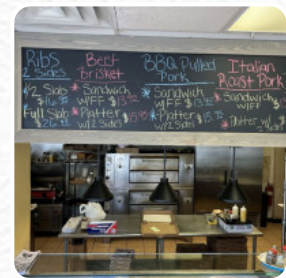 Ribs
2 Sides
1/2 Slab
Full Slab
Beef
Brisket
* Sandwich
w/FF $13.
* Platter
w/2 Sides
BBQ Pulled
Pork
* Sandwich
w/FF $13.
* Platter
w/2 Sides
Italian
Roast Pork
* Sandwich
w/FF
* Platter w/